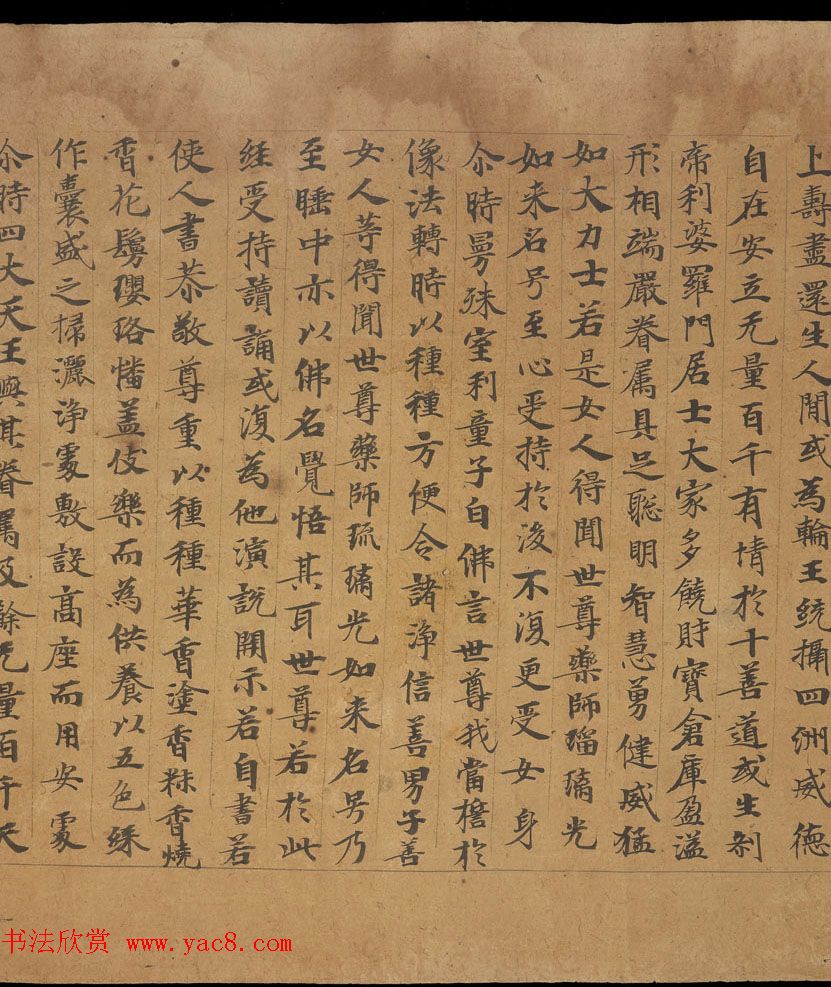 上壽盡還生人間或為輪王統攝四洲威德
自在安立无量百千有情於十善道或生剎
帝利婆羅門居士大家多饒財寶倉庫盈溢
形相端嚴眷属具足聡明智慧勇健威猛
如大力士若是女人得聞世尊藥師瑠璃光
如来名号至心受持於後不復更受女身
尒時曼殊室利童子白佛言世尊我當擔於
像法轉時以種種方便令諸淨信善男子善
女人等得聞世尊藥師琉璃光如来名号乃
至睡中亦以佛名覺悟其耳世尊若於此
経受持讀誦或復為他演說開示若自書若
使人書恭敬尊重以種種華香塗香粖香燒
香花鬘瓔珞幡盖伎樂而為供養以五色綵
作囊盛之掃灑淨處敷設高座而用安處
尒時四大天王與其眷屬及餘无量百千天
书法欣赏 www.yac8.com